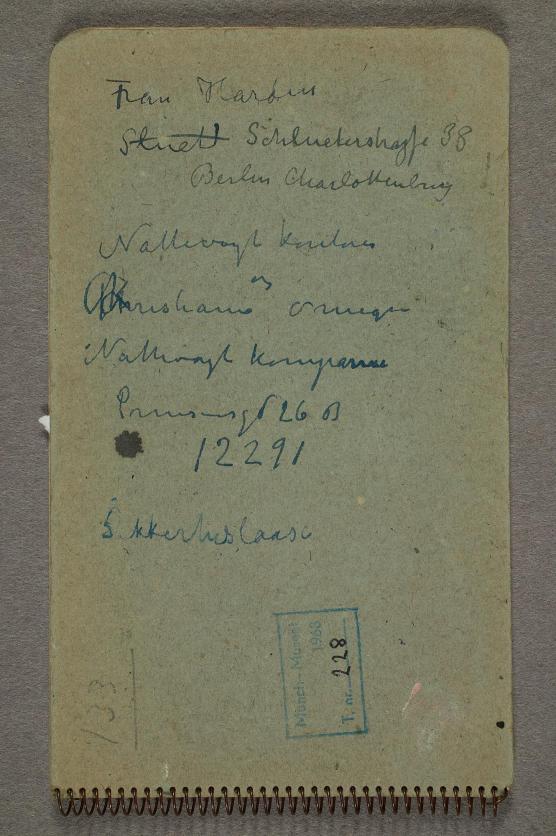 Frau Harden
Stuett Schlueterstrasse 38
Berlin Charlottenburg
Nattevagt kontoret
Christiania og omegn
Nattevagt kompani
Prinsensgt 26 B
12291
Sikkerhetslaase
Munch-Museet
1963
T. nr. 228
133